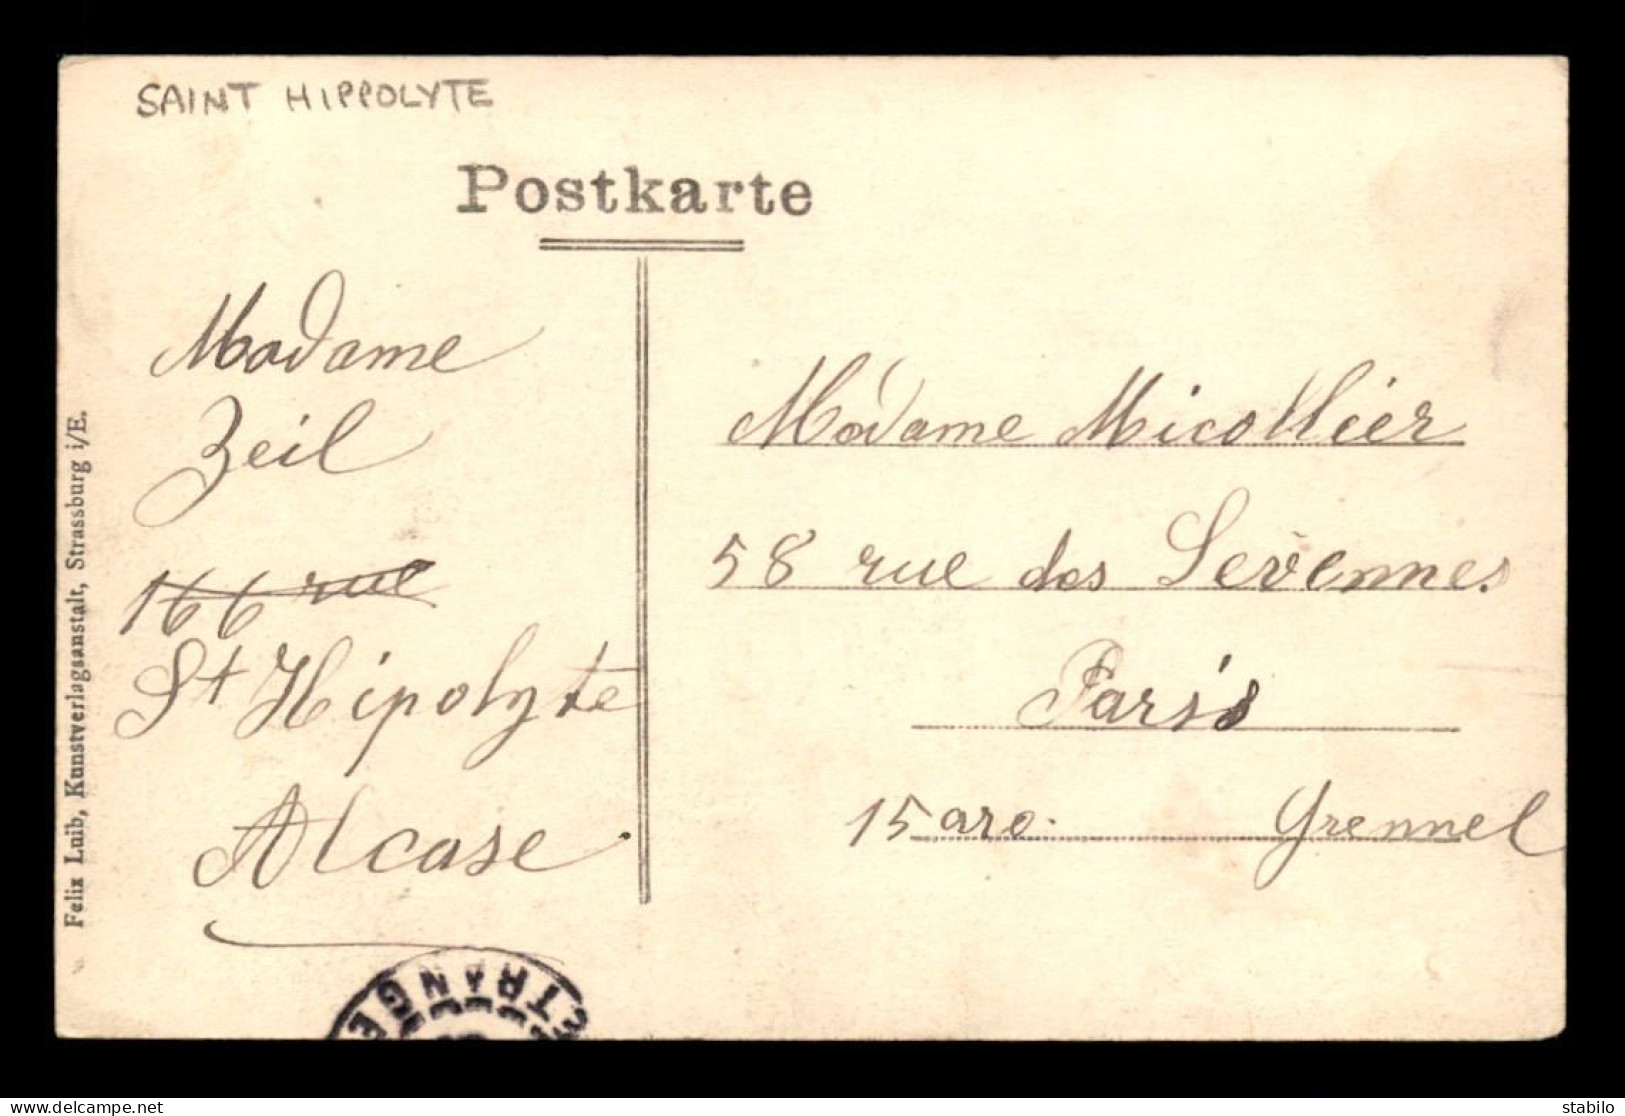 SAINT HIPPOLYTE
Postkarte
Madame
Zeil
166 rue
St Hipolyte
Alcase
Madame Micollier
58 rue des Sevennes
Paris
15 aro. Grennel
Felix Luib, Kunstverlagsanstalt, Strassburg i/E.
ETRANGE
delcampe.net
stabilo